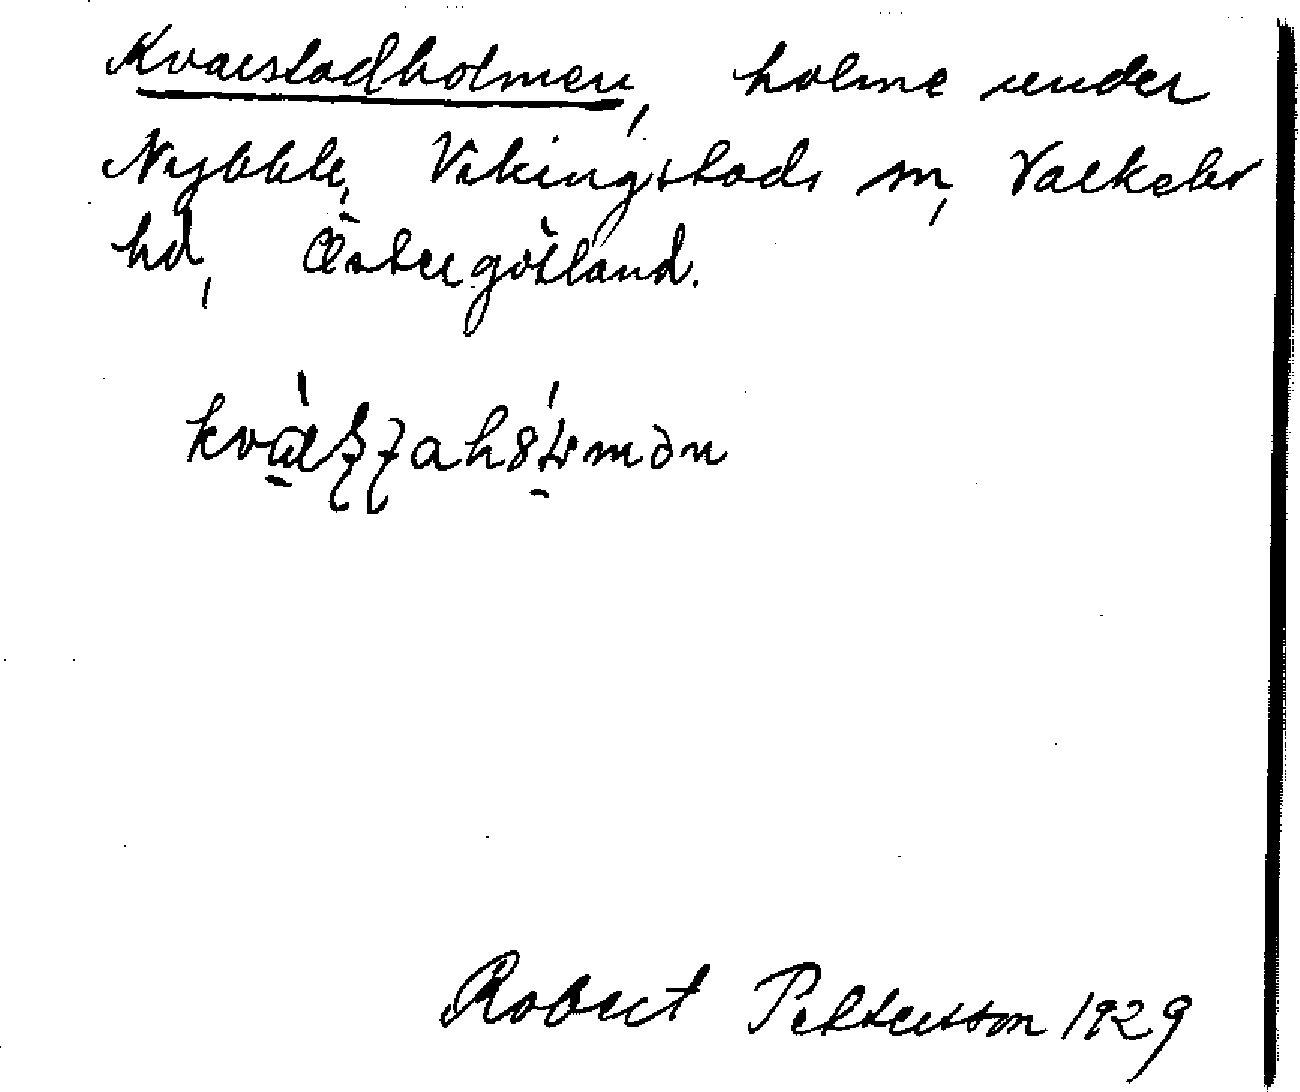 Kvarstadholmen, holme under
Nybble, Vikingstads sn, Valkebo
hd, Östergötland.
Robert Pettersson 1929